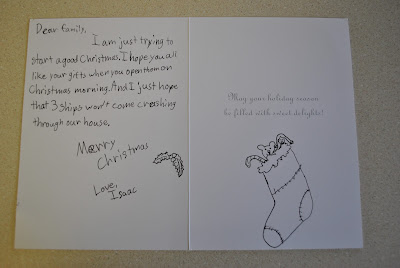 Dear family,
I am just trying to
start a good Christmas. I hope you all
like your gifts when you open them on
Christmas morning. And I just hope
that 3 ships won't come crashing
through our house.
Merry
Christmas
Love,
Isaac
May your holiday season
be filled with sweet delights!